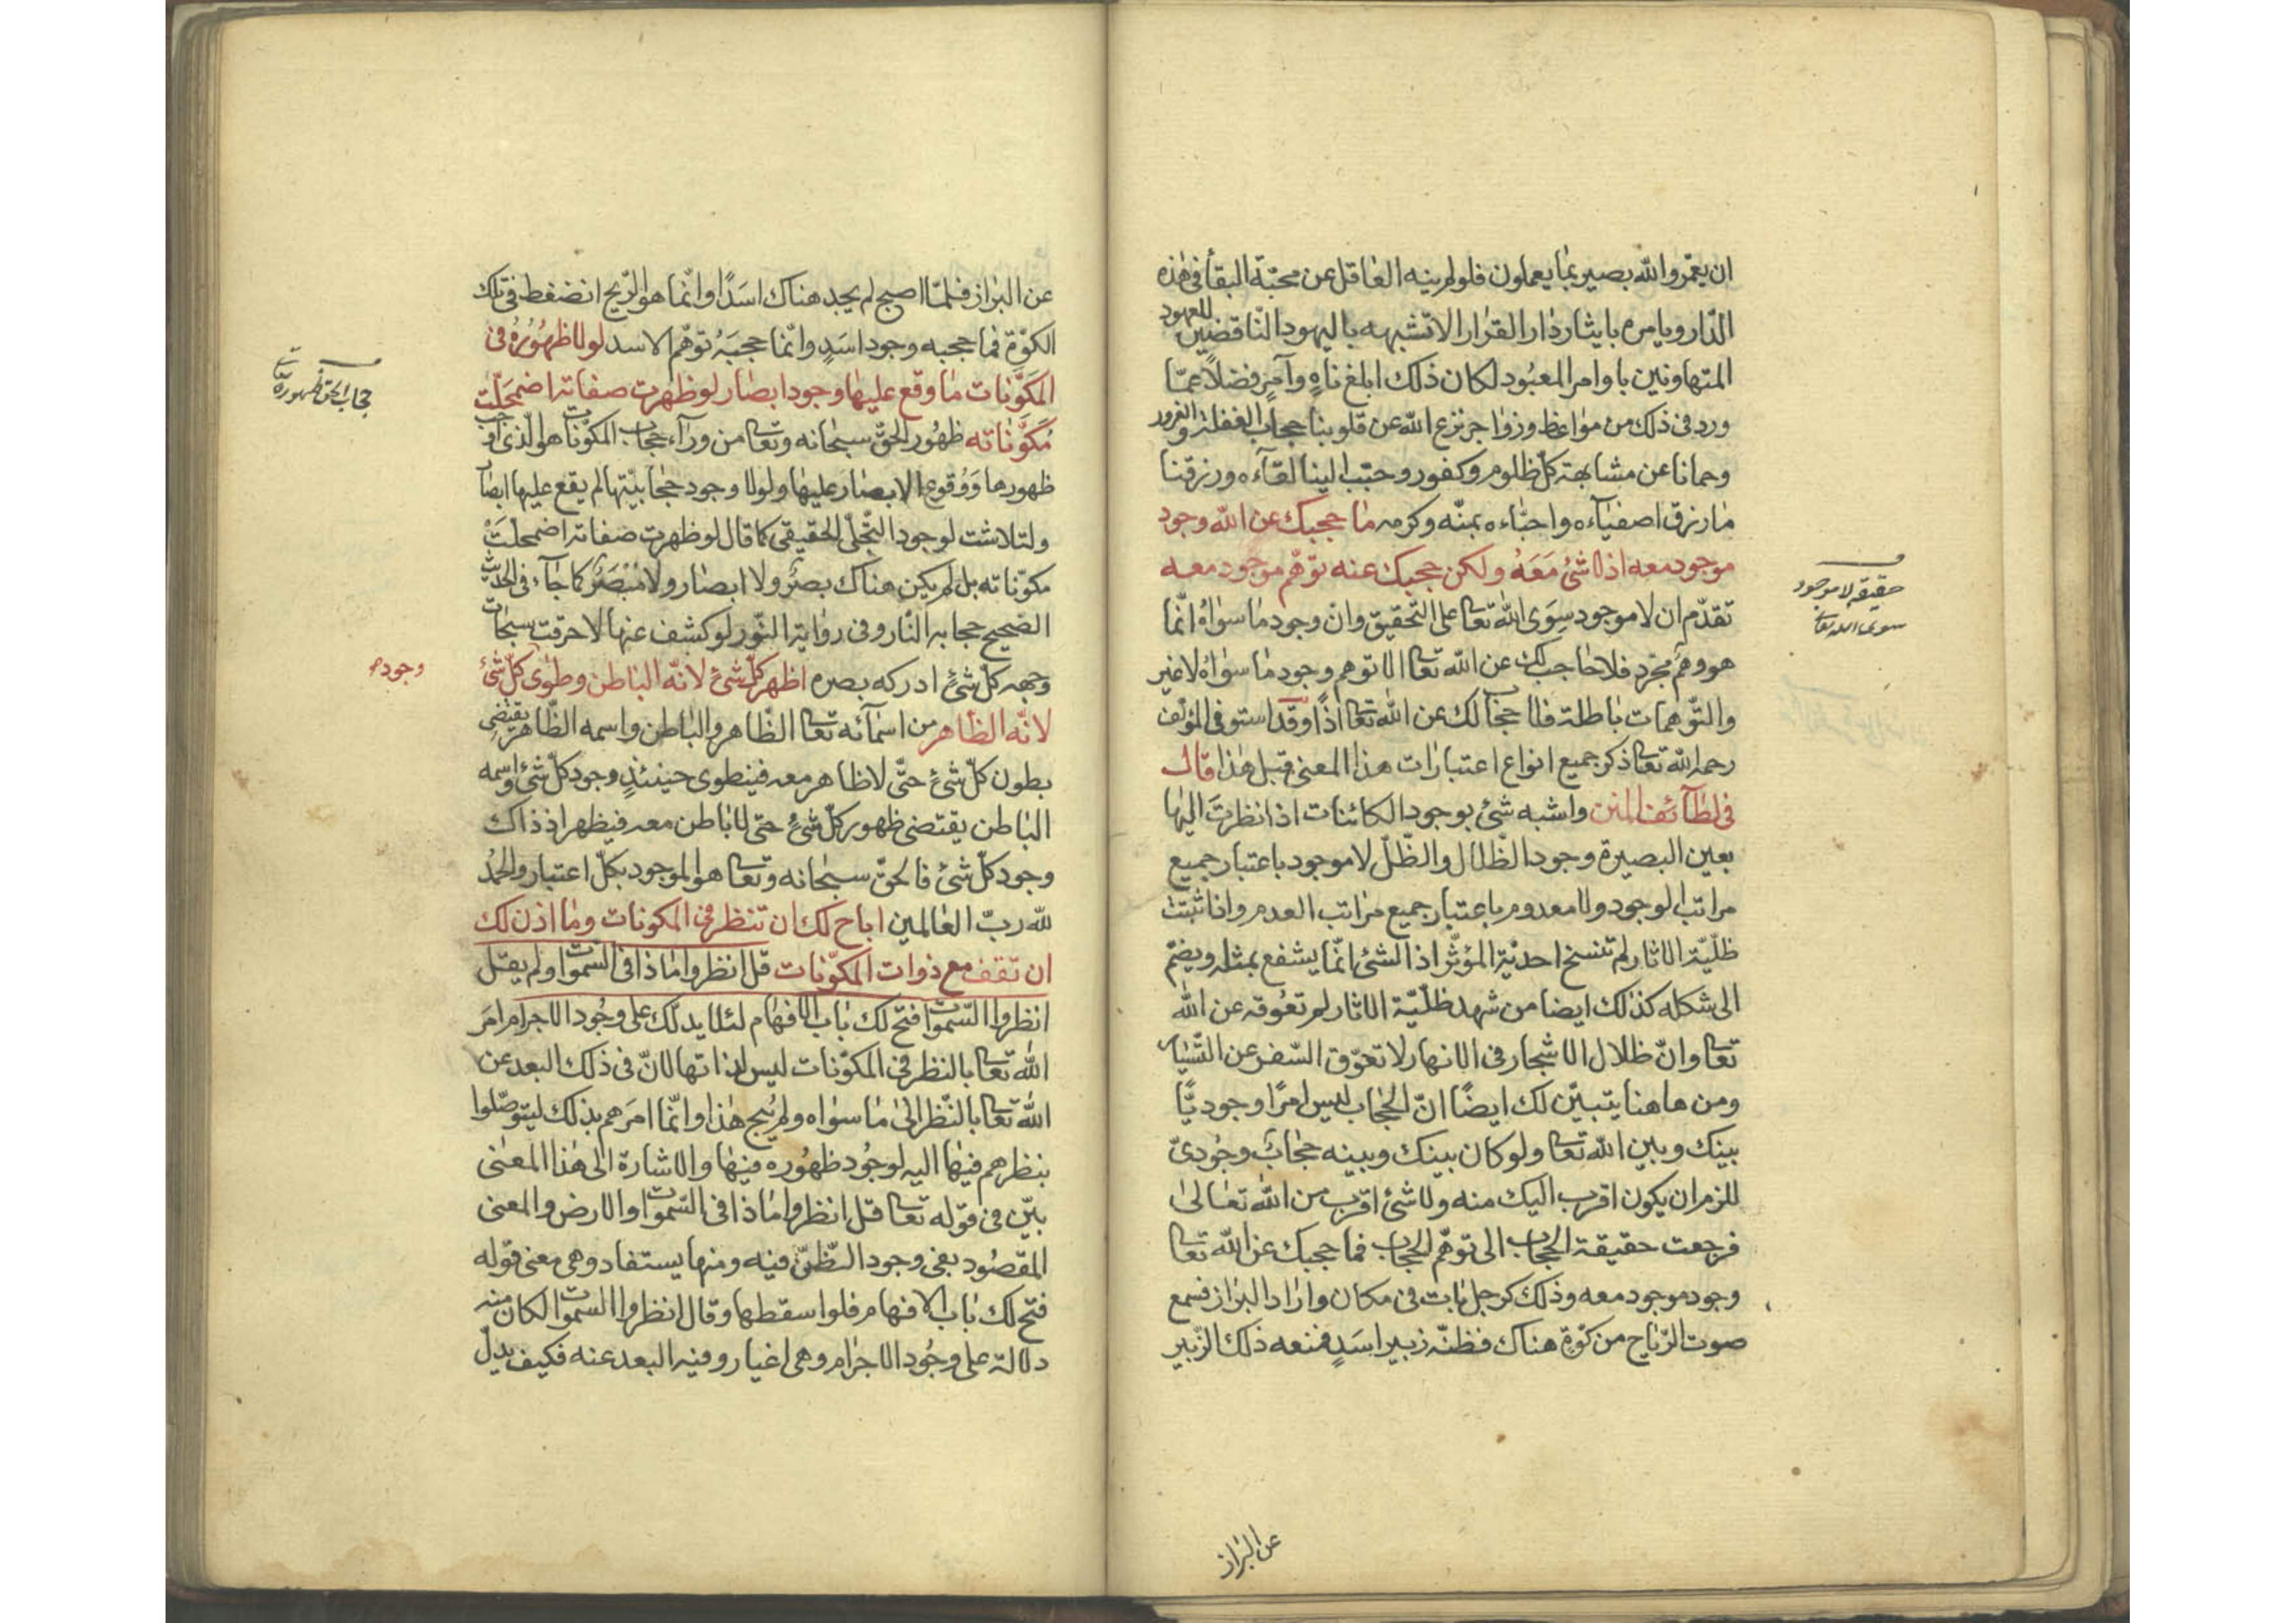 ان يعمّر والله بصير بما يعملون فلو لم ينه العاقل عن محبّة البقأ فى هذه
الدّار ويامره بايثار دار القرار الا تشبهه باليهود النّاقضين للعهود
المتهاونين باوامر المعبُود لكان ذلك ابلغ ناهٍ وآمرٍ فضلاً عمّا
ورد فى ذلك من مواعظ وزواجر نزع الله عن قلوبنا حجاب الغفلة والغرور
وحمانا عن مشابهة كلّ ظلوم وكفور وحبّب الينا لقآءه ورزقنا
ما رزق اصفيآءه واحبّاءه بمنّه وكرمه ما حجبك عن الله وجود
موجود معه اذ لا شئ مَعَهُ ولكن حجبك عنه توهّم موجود معه
تقدّم ان لا موجود سِوَى الله تعا على التحقيق وانّ وجود ما سواهُ انّما
هو وهمٌ مجرّد فلا حاجب لك عن الله تعا الا توهم وجود ما سواهُ لا غير
والتّوهمات باطلة فلا حجاب لك عن الله تعا اذًا وقد استوفى المؤلف
رحمه الله تعا ذكر جميع انواع اعتبارات هذا المعنى قبل هذا قال
فى لطآئف المنن واشبه شئ بوجود الكائنات اذا نظرتَ اليها
بعين البصيرة وجود الظّلال والظّلّ لا موجود باعتبار جميع
مراتب الوجود ولا معدوم باعتبار جميع مراتب العدم واذا ثبتت
ظلّيّة الاثار لم تنسخ احديّة المؤثّر اذ الشئ انّما يشفع بمثله ويضمّ
الى شكله كذلك ايضا من شهد ظلّيّة الاثار لم تعُوقه عن الله
تعا وانّ ظلال الاشجار فى الانهار لا تعوّق السّفن عن التّسيار
ومن هاهنا يتبيّن لك ايضًا انّ الحجاب ليس امرًا وجوديًّا
بينك وبين الله تعا ولو كان بينك وبينه حجابٌ وجُودىّ
للزم ان يكون اقرب اليك منه ولا شئ اقرب من الله تعالىٰ
فرجعت حقيقة الحجاب الى توهّم الحجاب فما حجبك عن الله تعا
وجود موجود معه وذلك كرجل بات فى مكان واراد البراز فسمع
صوت الرّياح من كوّةٍ هناك فظنّه زبير اسَدٍ فمنعه ذلك الزّبير
عن البراز
حقيقة لا موجود
سوى الله تعا
عن البراز فلمّا اصبح لم يجد هناك اسَدًا وانّما هو الرّيح انضغط فى تلك
الكوّة فما حجبه وجود اسَدٍ وانّما حجبَهُ توهّم الاسد لولا ظهُورُه فى
المكوَّنات ما وقع عليها وجود ابصار لو ظهرت صفاته اضمحلّت
مُكَوَّناته ظهُور الحقّ سبحانه وتعا من ورآء حجاب المكوّنات هو الّذى اوجب
ظهورها وَوُقوع الابصار عليها ولولا وجود حجابيّتها لم يقع عليها ابصار
ولتلاشت لوجود التّجلّى الحقيقى كما قال لو ظهرت صفاته اضمحلّتْ
مكوّناته بل لم يكن هناك بصرٌ ولا ابصار ولا مُبْصَرٌ كما جآء فى الحديث
الصّحيح حجابه النّار وفى رواية النّور لو كشف عنها لاحرقت سبحات
وجهه كلّ شئٍ ادركه بصره اظهر كلّ شئٍ لانّه الباطن وطوٰى كلّ شئ
لانّه الظّاهر من اسمآئه تعا الظّاهر والباطن واسمه الظّاهر يقتضى
بطون كلّ شئٍ حتّى لا ظاهر معه فينطوى حينئذٍ وجود كلّ شئ واسمه
الباطن يقتضى ظهور كلّ شئٍ حتى لا باطن معه فيظهر اذ ذاك
وجود كلّ شئ فالحقّ سبحانه وتعا هو الموجود بكلّ اعتبار والحمدُ
لله ربّ العالمين اباح لك ان تنظر فى المكونات وما اذن لك
ان تقف مع ذوات المكوّنات قل انظروا ماذا فى السّموات ولم يقل
انظروا السّموات فتح لك باب الافهام لئلا يدلّك على وجُود الاجرام امرَ
الله تعا بالنّظر فى المكوّنات ليس لذاتها لانّ فى ذلك البعد عن
الله تعا بالنّظر الىٰ ما سواه ولم يُبِح هذا وانّما امرَهم بذلك ليتوصّلوا
بنظرهم فيها اليه لوجُود ظهُوره فيها والاشارة الىٰ هذا المعنى
بيّن فى قوله تعا قل انظروا ماذا فى السّموات والارض والمعنى
المقصُود بفى وجود التّظنّ فيه ومنها يستفاد وهى معنى قوله
فتح لك باب الافهام فلو اسقطها وقال انظروا السموات لكان منه
دلالة على وجُود الاجرام وهى اغيار وفيه البعد عنه فكيف يدلّ
حجاب الحق ظهوره
وجوده